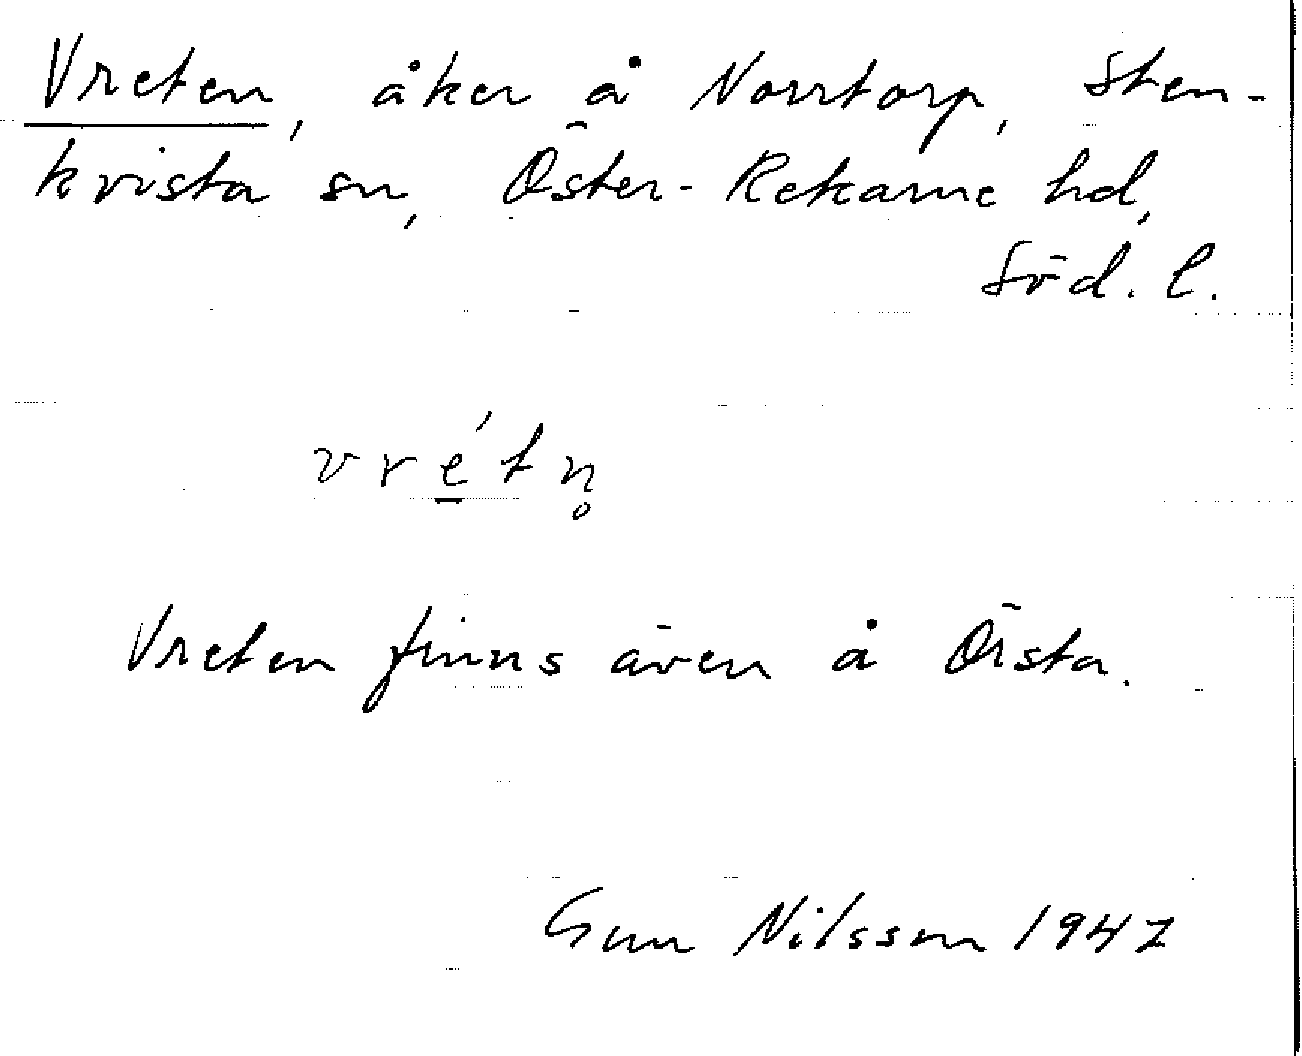 Vreten, åker å Norrtorp, Sten-
kvista sn, Öster-Rekarne hd,
Söd. l.
vre̲´tn̥
Vreten finns även å Örsta.
Gun Nilsson 1947